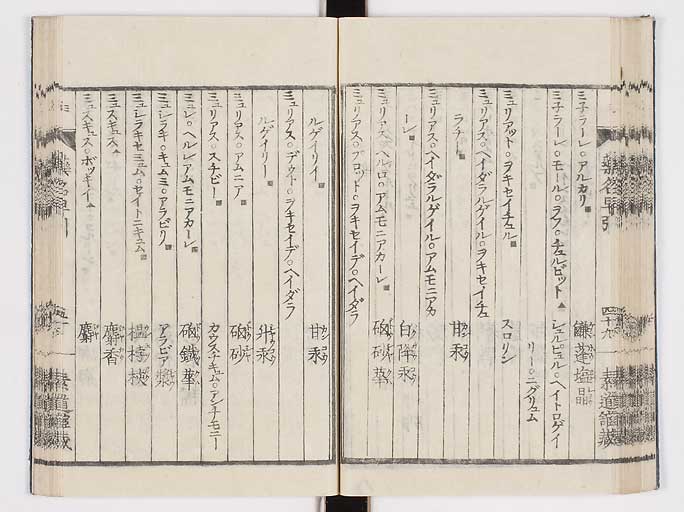 ミ子ラーレ。アルカリ 鎌蓬塩
ミ子ラーレ。モール。ヲフ。チュルビット シュルピュル。ヘイトロゲイ
リー。ニグリュム
ミュリアット。ヲキセイチュル スロリン
ミュリアス。ヘイダラルゲイル。ヲキセイチュ
ラチール 甘汞
ミュリアス。ヘイダラルゲイル。アムモニアカ
ーレ 白降汞
ミュリアス。ヘルロ。アムモニアカーレ 硇砂華
ミュリアス。プロット。ヲキセイデ。ヘイダラ
ルゲイリイ 甘汞
ミュリアス。デウト。ヲキセイデ。ヘイダラ
ルゲイリー 升汞
ミュリアス。アムニア 硇砂
ミュリアス。スチビー カウスチキュム。アンチモニー
ミュレ。ヘルレ。アムモニアカーレ 硇鐵華
ミュシラキ。キュムミ。アラビリ アラビア漿
ミュシラキセミュム。セイトニキュム 榲桲
ミュスキュス 麝香
ミュスキュス。ボッキィイ 麝
藥名早引
四十九
青道館蔵